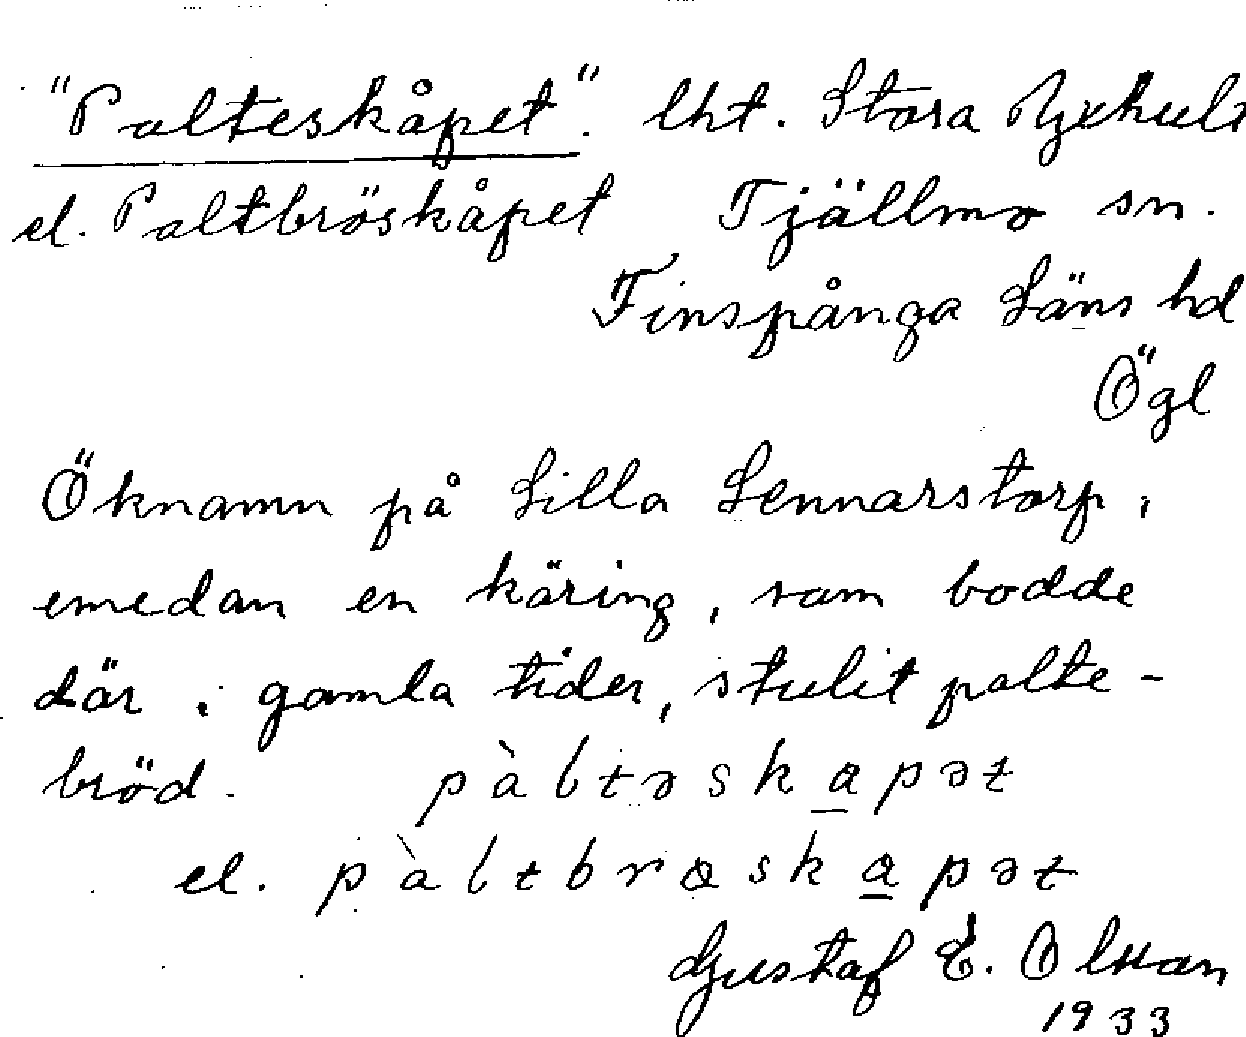 "Palteskåpet". lht. Stora
el. Paltbröskåpet Tjällmo sn.
Finspånga Läns hd
Ögl
Öknamn på Lilla Lennarstorp,
emedan en käring, som bodde
där i gamla tider, stulit palte-
bröd. pàltəskapət
el. pàltbrøskapət
Gustaf E. Olsson
1933